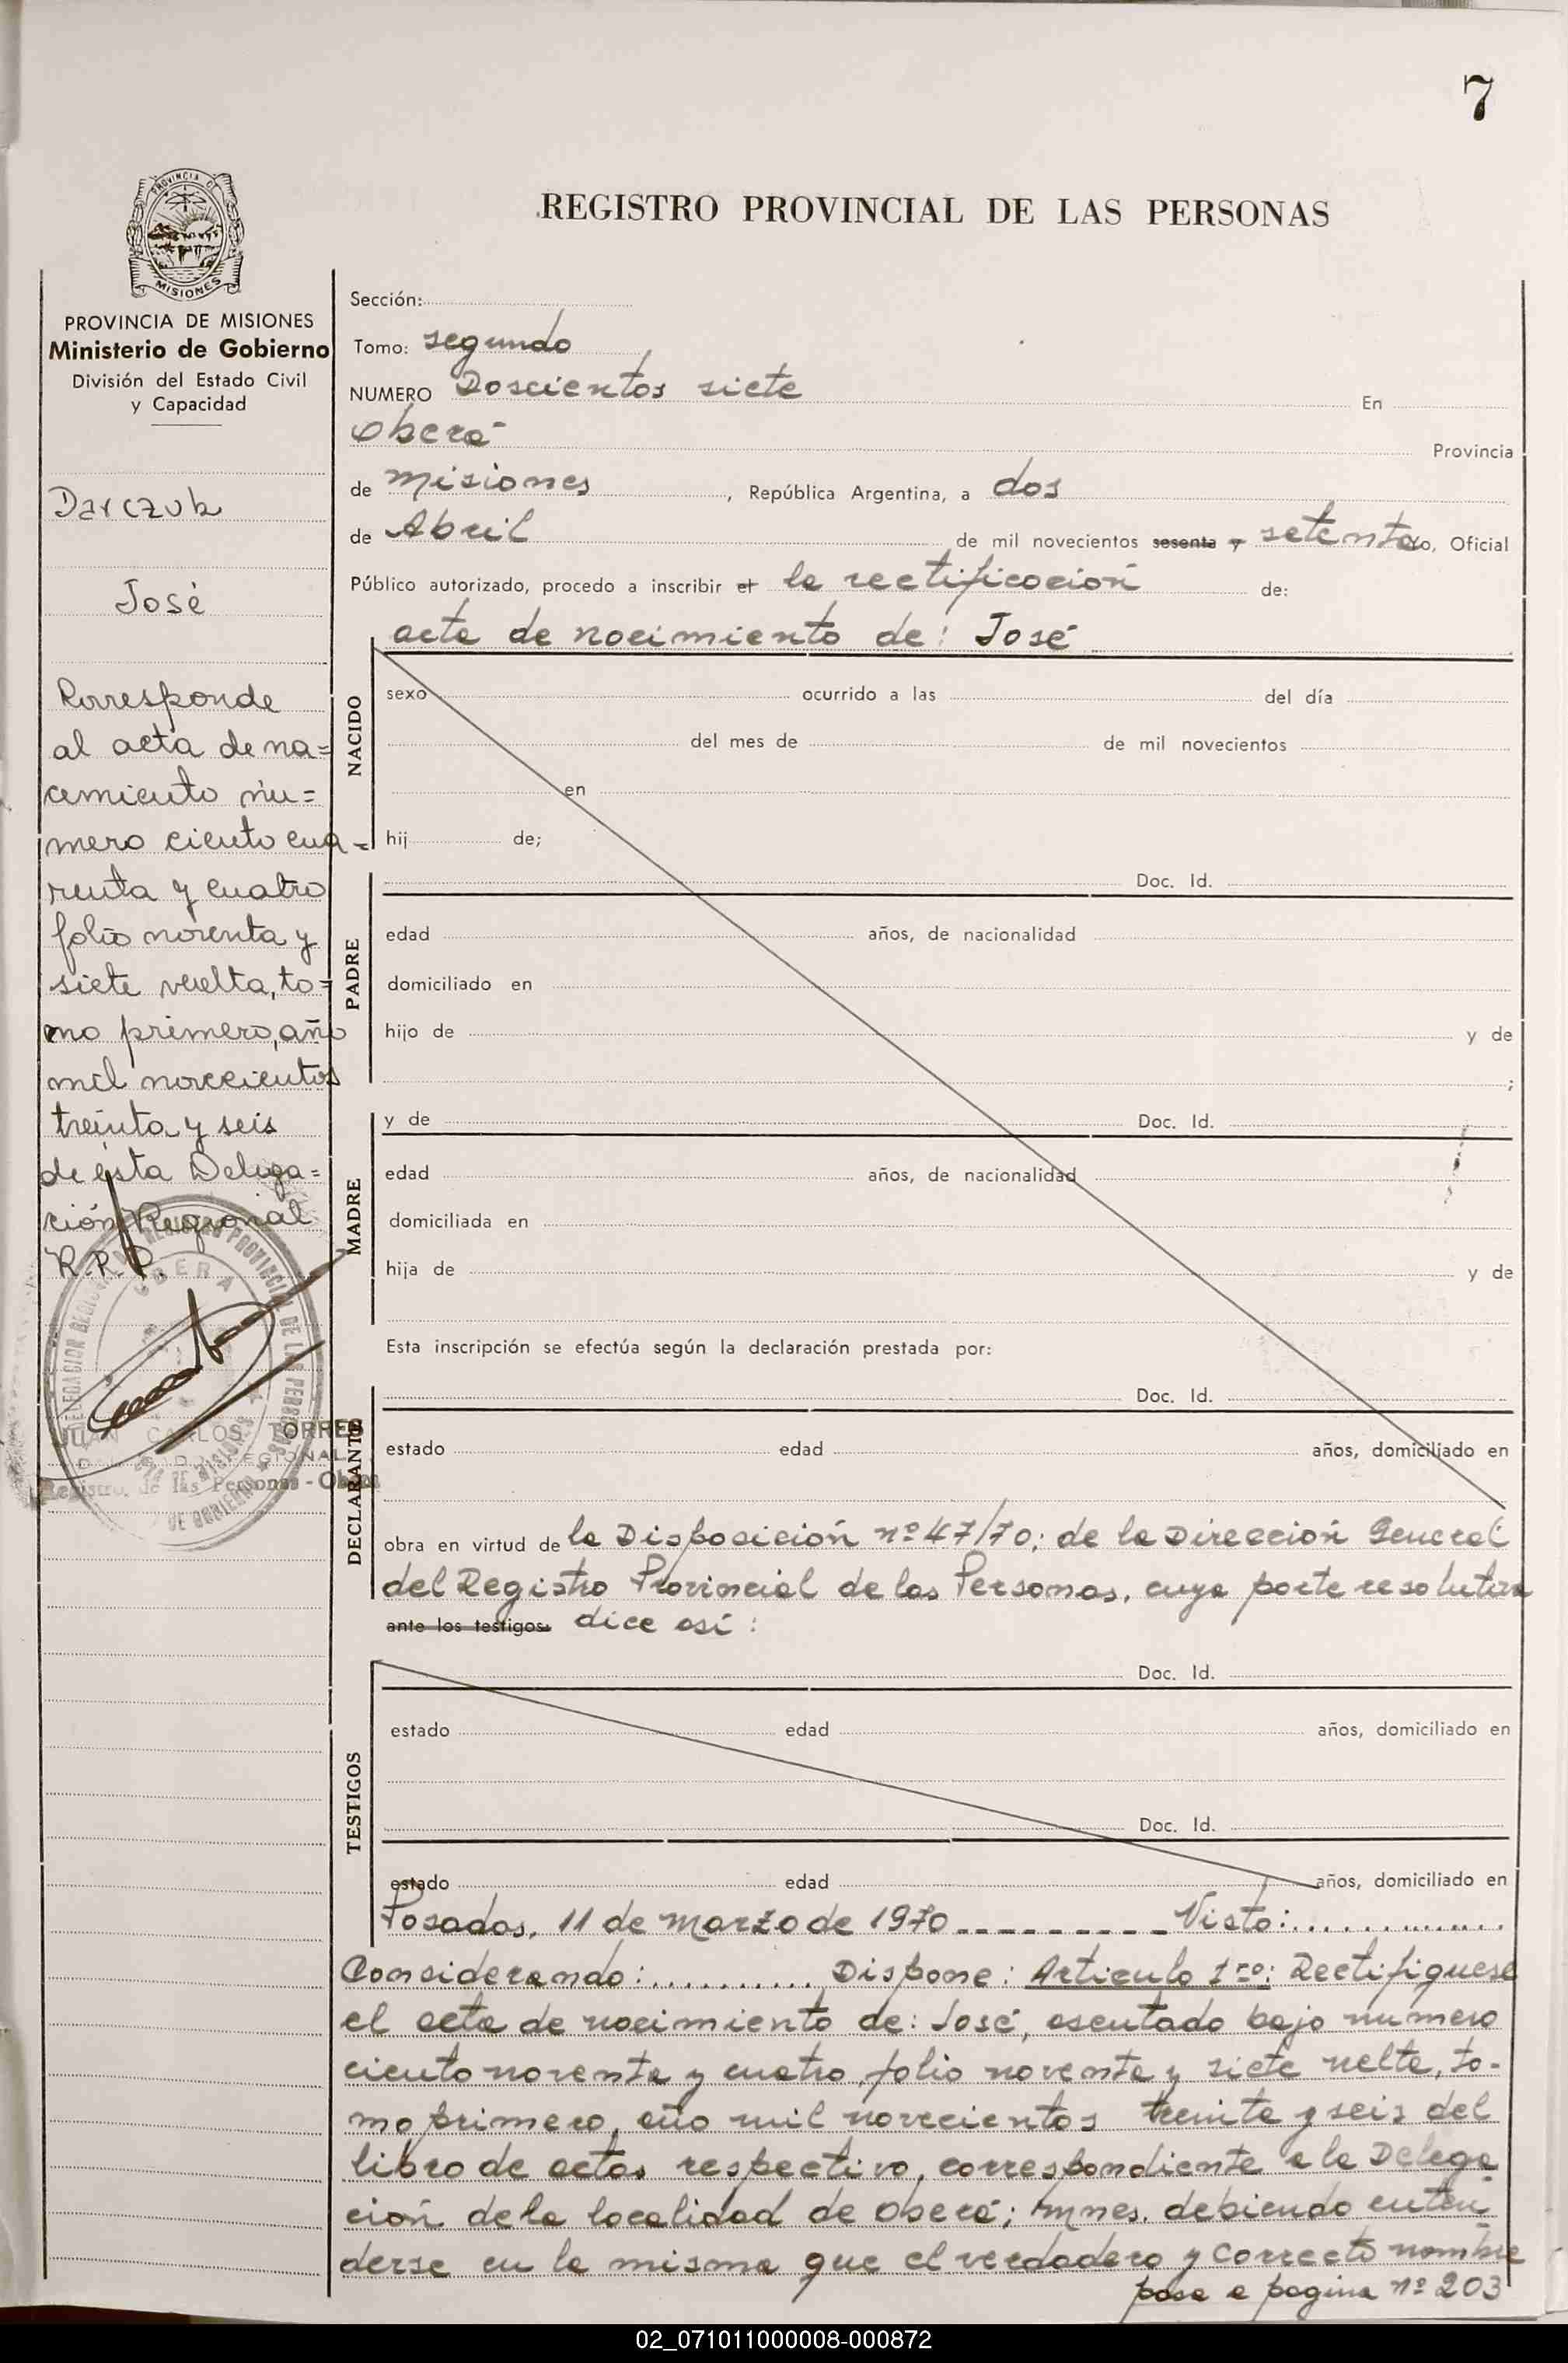 7
REGISTRO PROVINCIAL DE LAS PERSONAS
PROVINCIA DE
MISIONES
PROVINCIA DE MISIONES
Ministerio de Gobierno
División del Estado Civil
y Capacidad
Darczuk
José
Corresponde
al acta de na=
cimiento nú=
mero ciento cua=
renta y cuatro
folio noventa y
siete vuelta, to=
mo primero, año
mil novecientos
treinta y seis
de ésta Delega=
ción Regional
R.P.P.
OBERA
JUAN CARLOS TORRES
Registro de las Personas - Oberá
Sección:
Tomo: segundo
NUMERO Doscientos siete En
Oberá Provincia
de Misiones, República Argentina, a dos
de Abril de mil novecientos sesenta y setenta yo, Oficial
Público autorizado, procedo a inscribir el la rectificación de:
acta de nacimiento de: José
NACIDO
sexo ocurrido a las del día
del mes de de mil novecientos
en
hij de;
Doc. Id.
PADRE
edad años, de nacionalidad
domiciliado en
hijo de y de
;
y de Doc. Id.
MADRE
edad años, de nacionalidad
domiciliada en
hija de y de
Esta inscripción se efectúa según la declaración prestada por:
Doc. Id.
DECLARANTE
estado edad años, domiciliado en
obra en virtud de la Disposición nº 47/70; de la Dirección General
del Registro Provincial de las Personas, cuya parte resolutiva
ante los testigos: dice así:
Doc. Id.
TESTIGOS
estado edad años, domiciliado en
Doc. Id.
estado edad años, domiciliado en
Posadas, 11 de marzo de 1970 _ _ _ _ _ _ _ _ _ Visto: . . . . . . . . . . .
Considerando: . . . . . . . . . . Dispone: Artículo 1ro: Rectifiquese
el acta de nacimiento de: José, asentado bajo numero
ciento noventa y cuatro, folio noventa y siete velta, to-
mo primero, año mil novecientos treinta y seis del
libro de actas respectivo, correspondiente a la Delega
ción de la localidad de Oberá; Mnes. debiendo enten
derse en la misma que el verdadero y correcto nombre
pasa a pagina nº 203
02_071011000008-000872